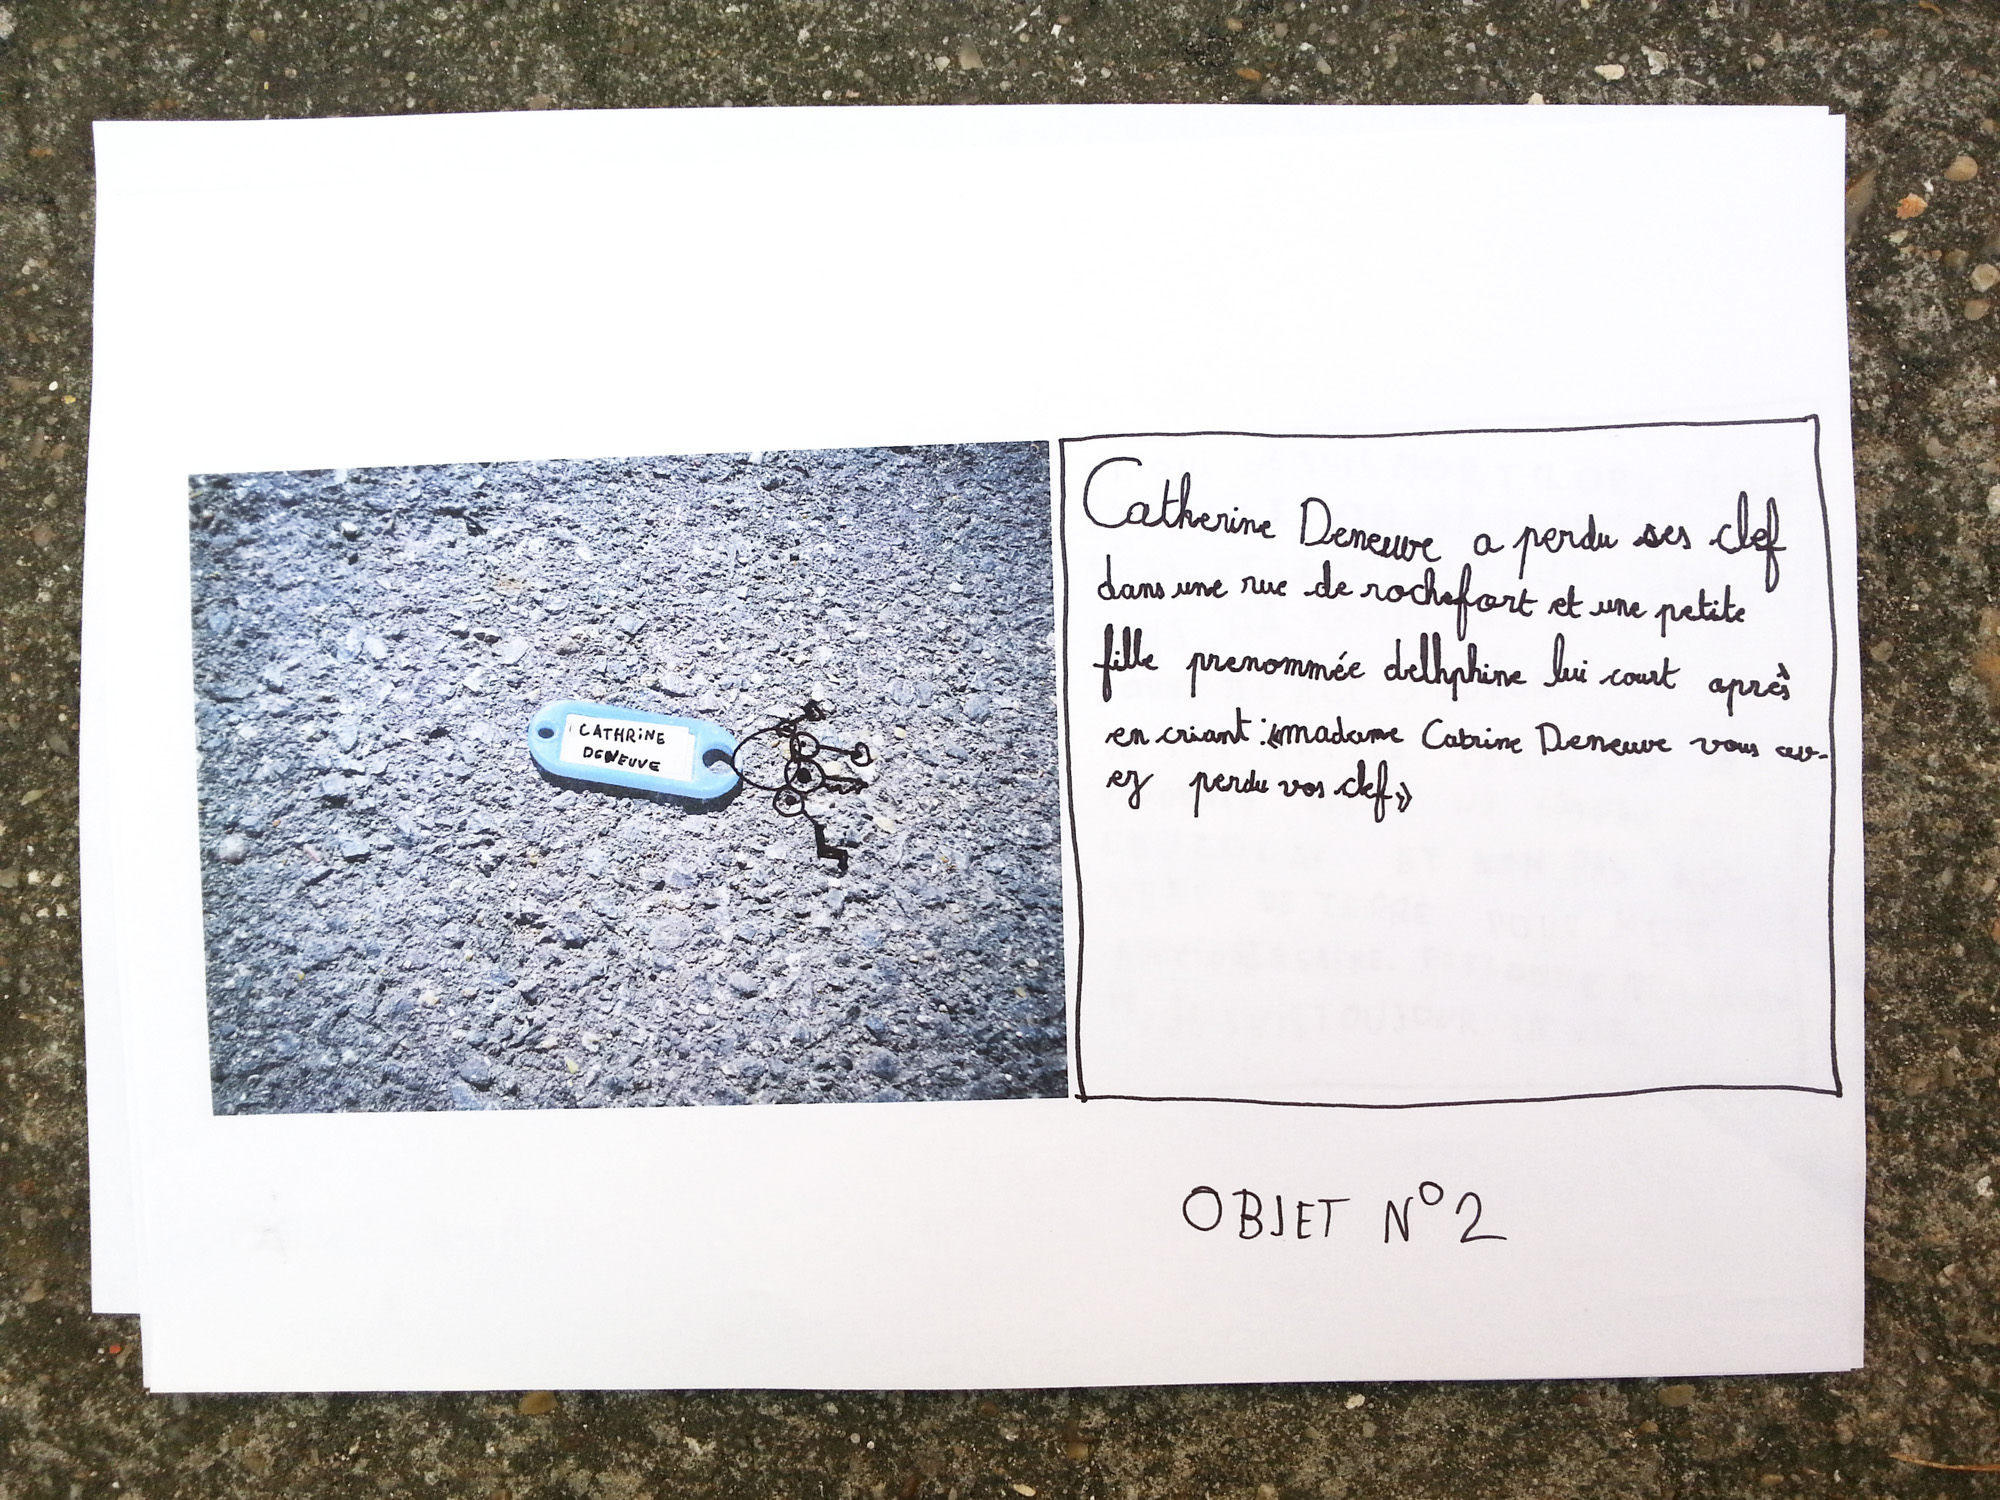 CATHRINE
DENEUVE
Catherine Deneuve a perdu ses clef
dans une rue de rochefort et une petite
fille prenommée dellhphine lui court après
en criant : «madame Catrine Deneuve vous av-
ez perdu vos clef»
OBJET N°2